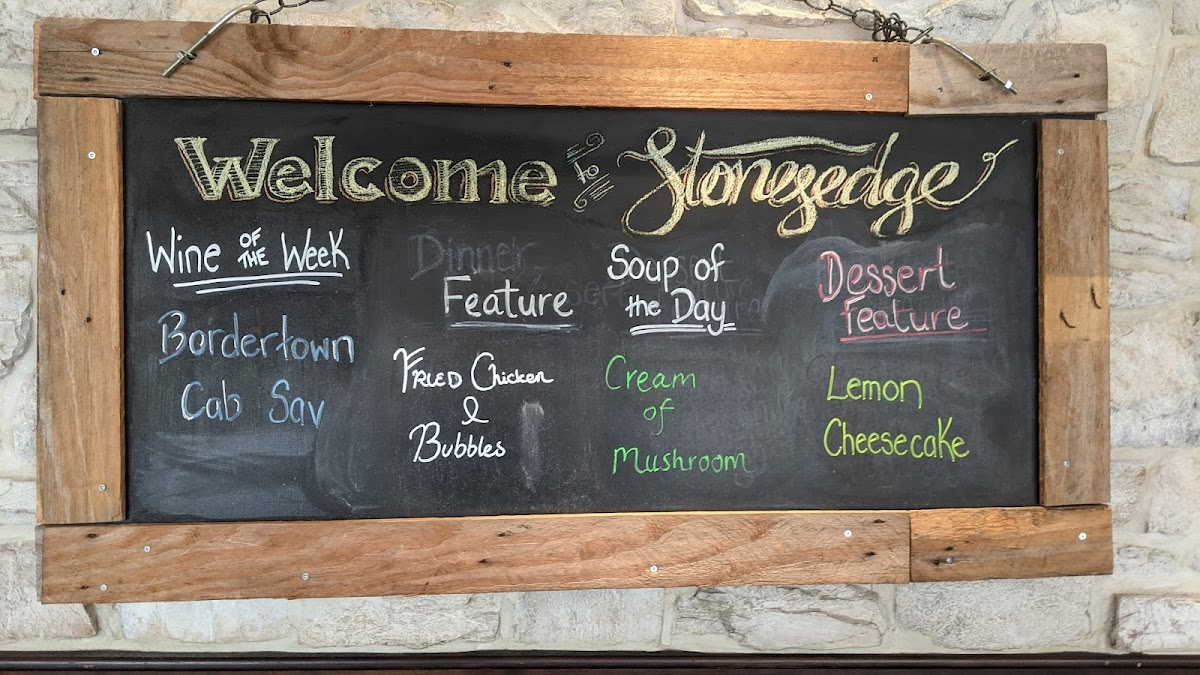 Welcome to Stonesedge
Wine OF THE Week
Bordertown
Cab Sav
Dinner
Feature
FRIED Chicken
&
Bubbles
Soup of
the Day
Cream
of
Mushroom
Dessert
Feature
Lemon
Cheesecake